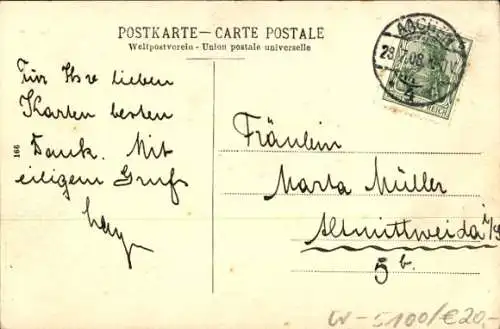 POSTKARTE — CARTE POSTALE
Weltpostverein - Union postale universelle
AACHEN
REICH
Für Ihre lieben
Karten besten
Dank. Mit
eiligem Gruß
166
Fräulein
Marta Müller
Altmittweida i/S
5 b.
W-5100/€20-